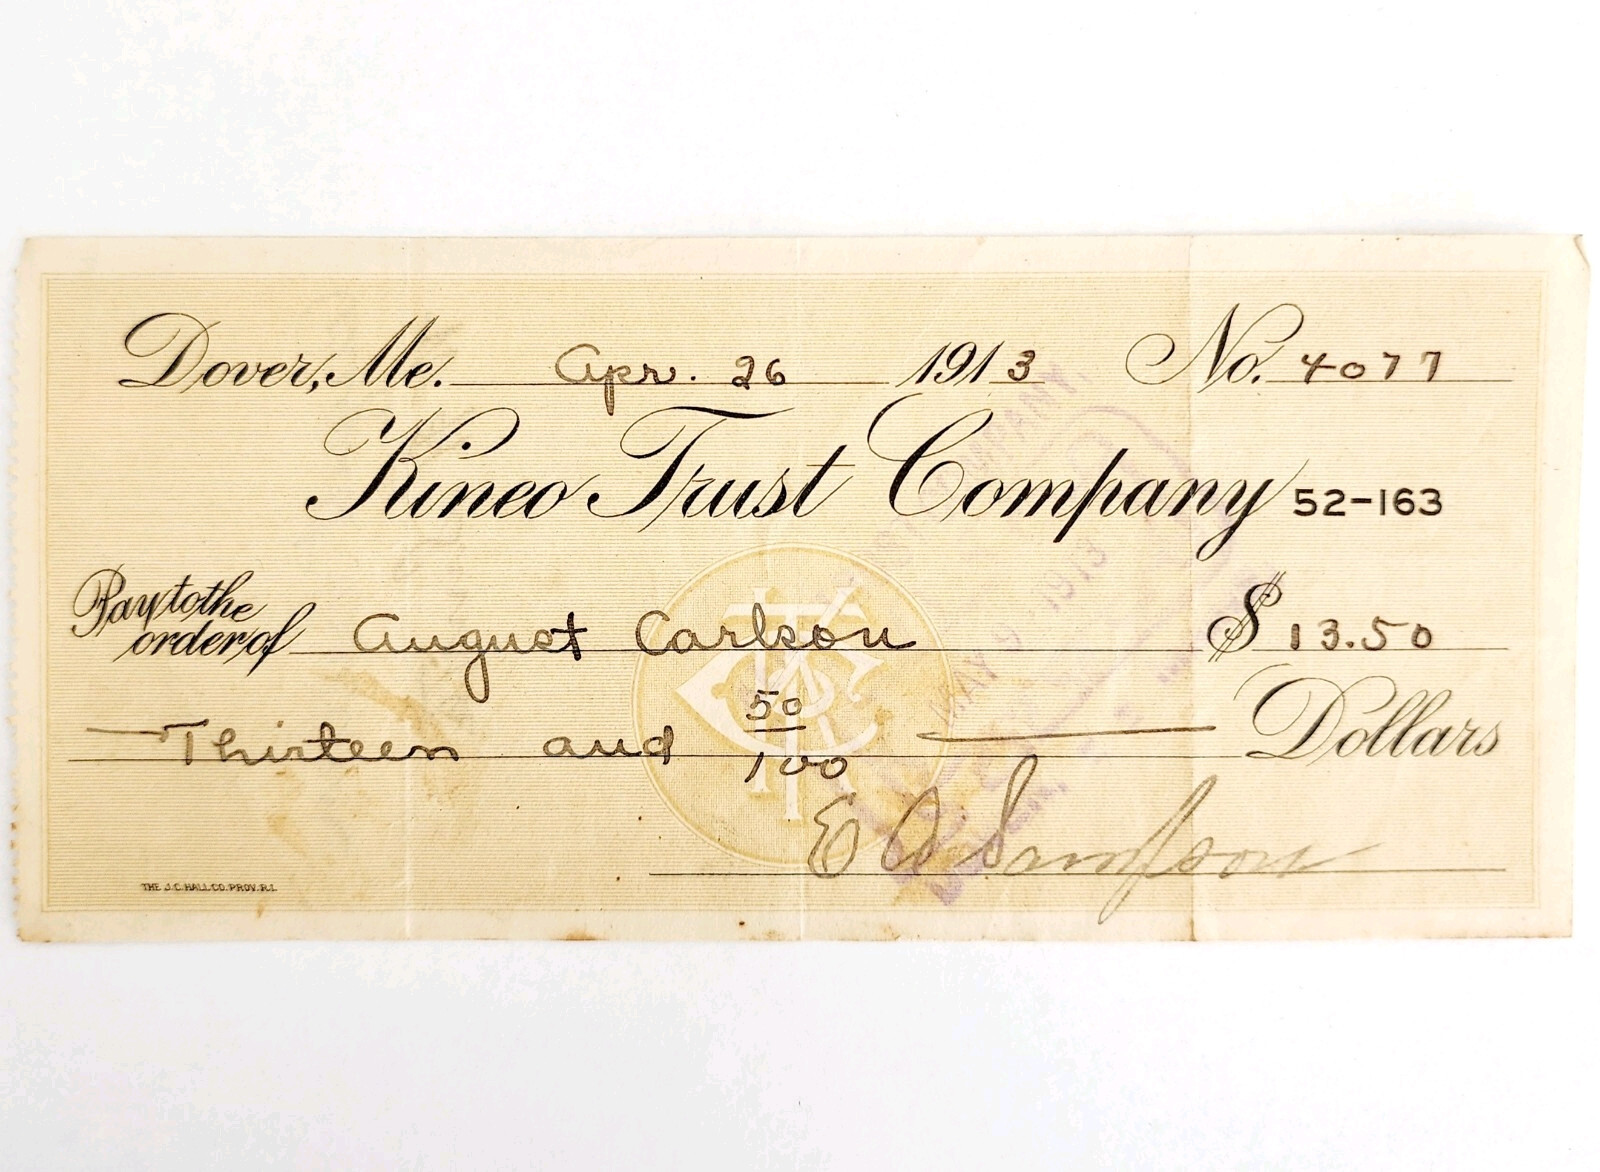 Dover, Me. Apr. 26 1913 No. 4077
Kineo Trust Company 52-163
Pay to the order of August Carlson $13.50
Thirteen and 50/100 Dollars
E A Sampson
THE J.C. HALL CO. PROV. R.I.
COMPANY
MAY 1913
KTC